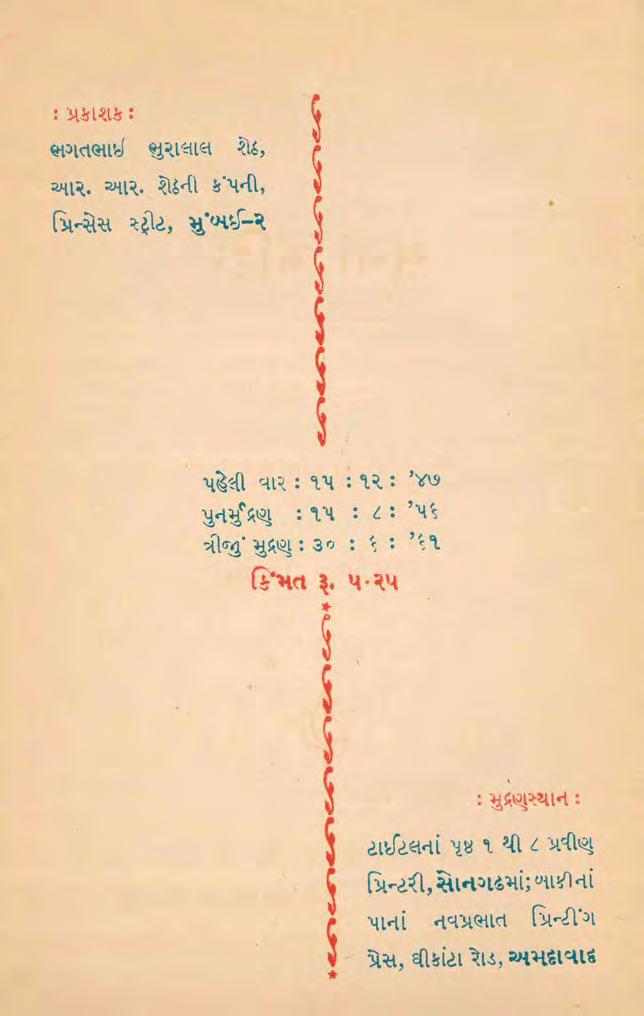 : પ્રકાશક :
ભગતભાઈ ભુરાલાલ શેઠ,
આર. આર. શેઠની કંપની,
પ્રિન્સેસ સ્ટ્રીટ, મુંબઈ–૨
પહેલી વાર : ૧૫ : ૧૨ : ’૪૭
પુનર્મુદ્રણ : ૧૫ : ૮ : ’૫૬
ત્રીજું મુદ્રણ : ૩૦ : ૬ : ’૬૧
કિંમત રૂ. ૫-૨૫
: મુદ્રણસ્થાન :
ટાઈટલનાં પૃષ્ઠ ૧ થી ૮ પ્રવીણ
પ્રિન્ટરી, સોનગઢમાં; બાકીનાં
પાનાં નવપ્રભાત પ્રિન્ટીંગ
પ્રેસ, ઘીકાંટા રોડ, અમદાવાદ